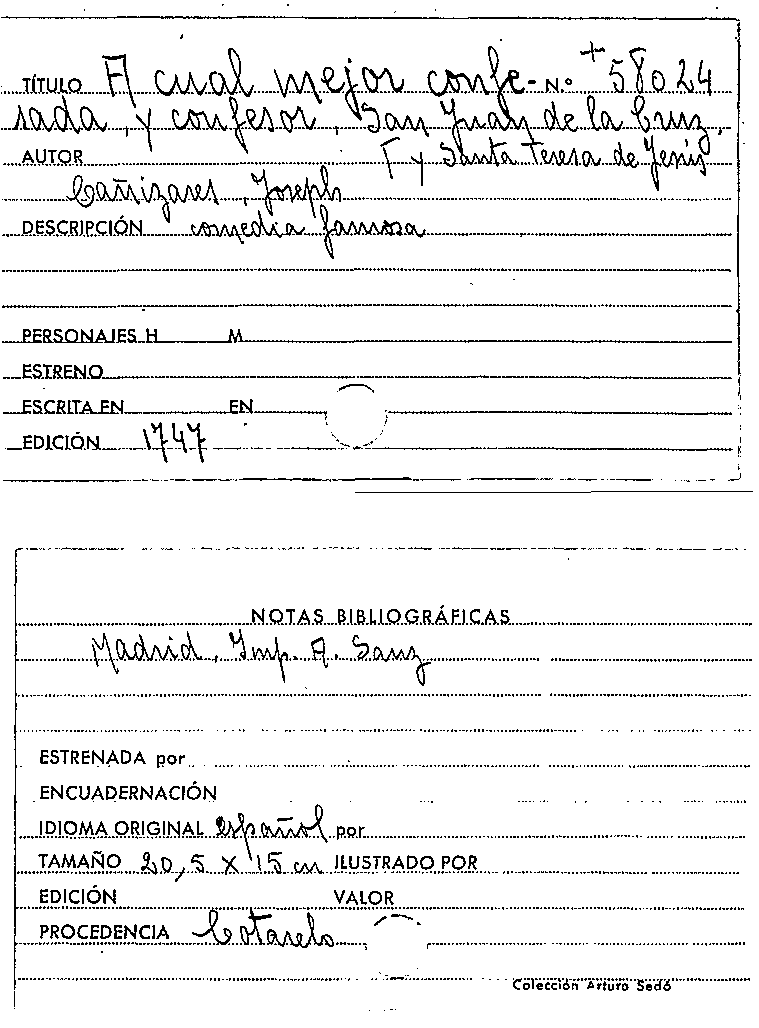 TÍTULO A cual mejor confe- N.º +58024
sada, y confesor, San Juan de la Cruz,
AUTOR Γ y Santa Teresa de Jesús
Cañizares, Joseph
DESCRIPCIÓN comedia famosa
PERSONAJES H M
ESTRENO
ESCRITA EN EN
EDICIÓN 1747
NOTAS BIBLIOGRÁFICAS
Madrid, Imp. A. Sanz
ESTRENADA por
ENCUADERNACIÓN
IDIOMA ORIGINAL español por
TAMAÑO 20,5 x 15 cm ILUSTRADO POR
EDICIÓN VALOR
PROCEDENCIA Cotarelo
Colección Arturo Sedó